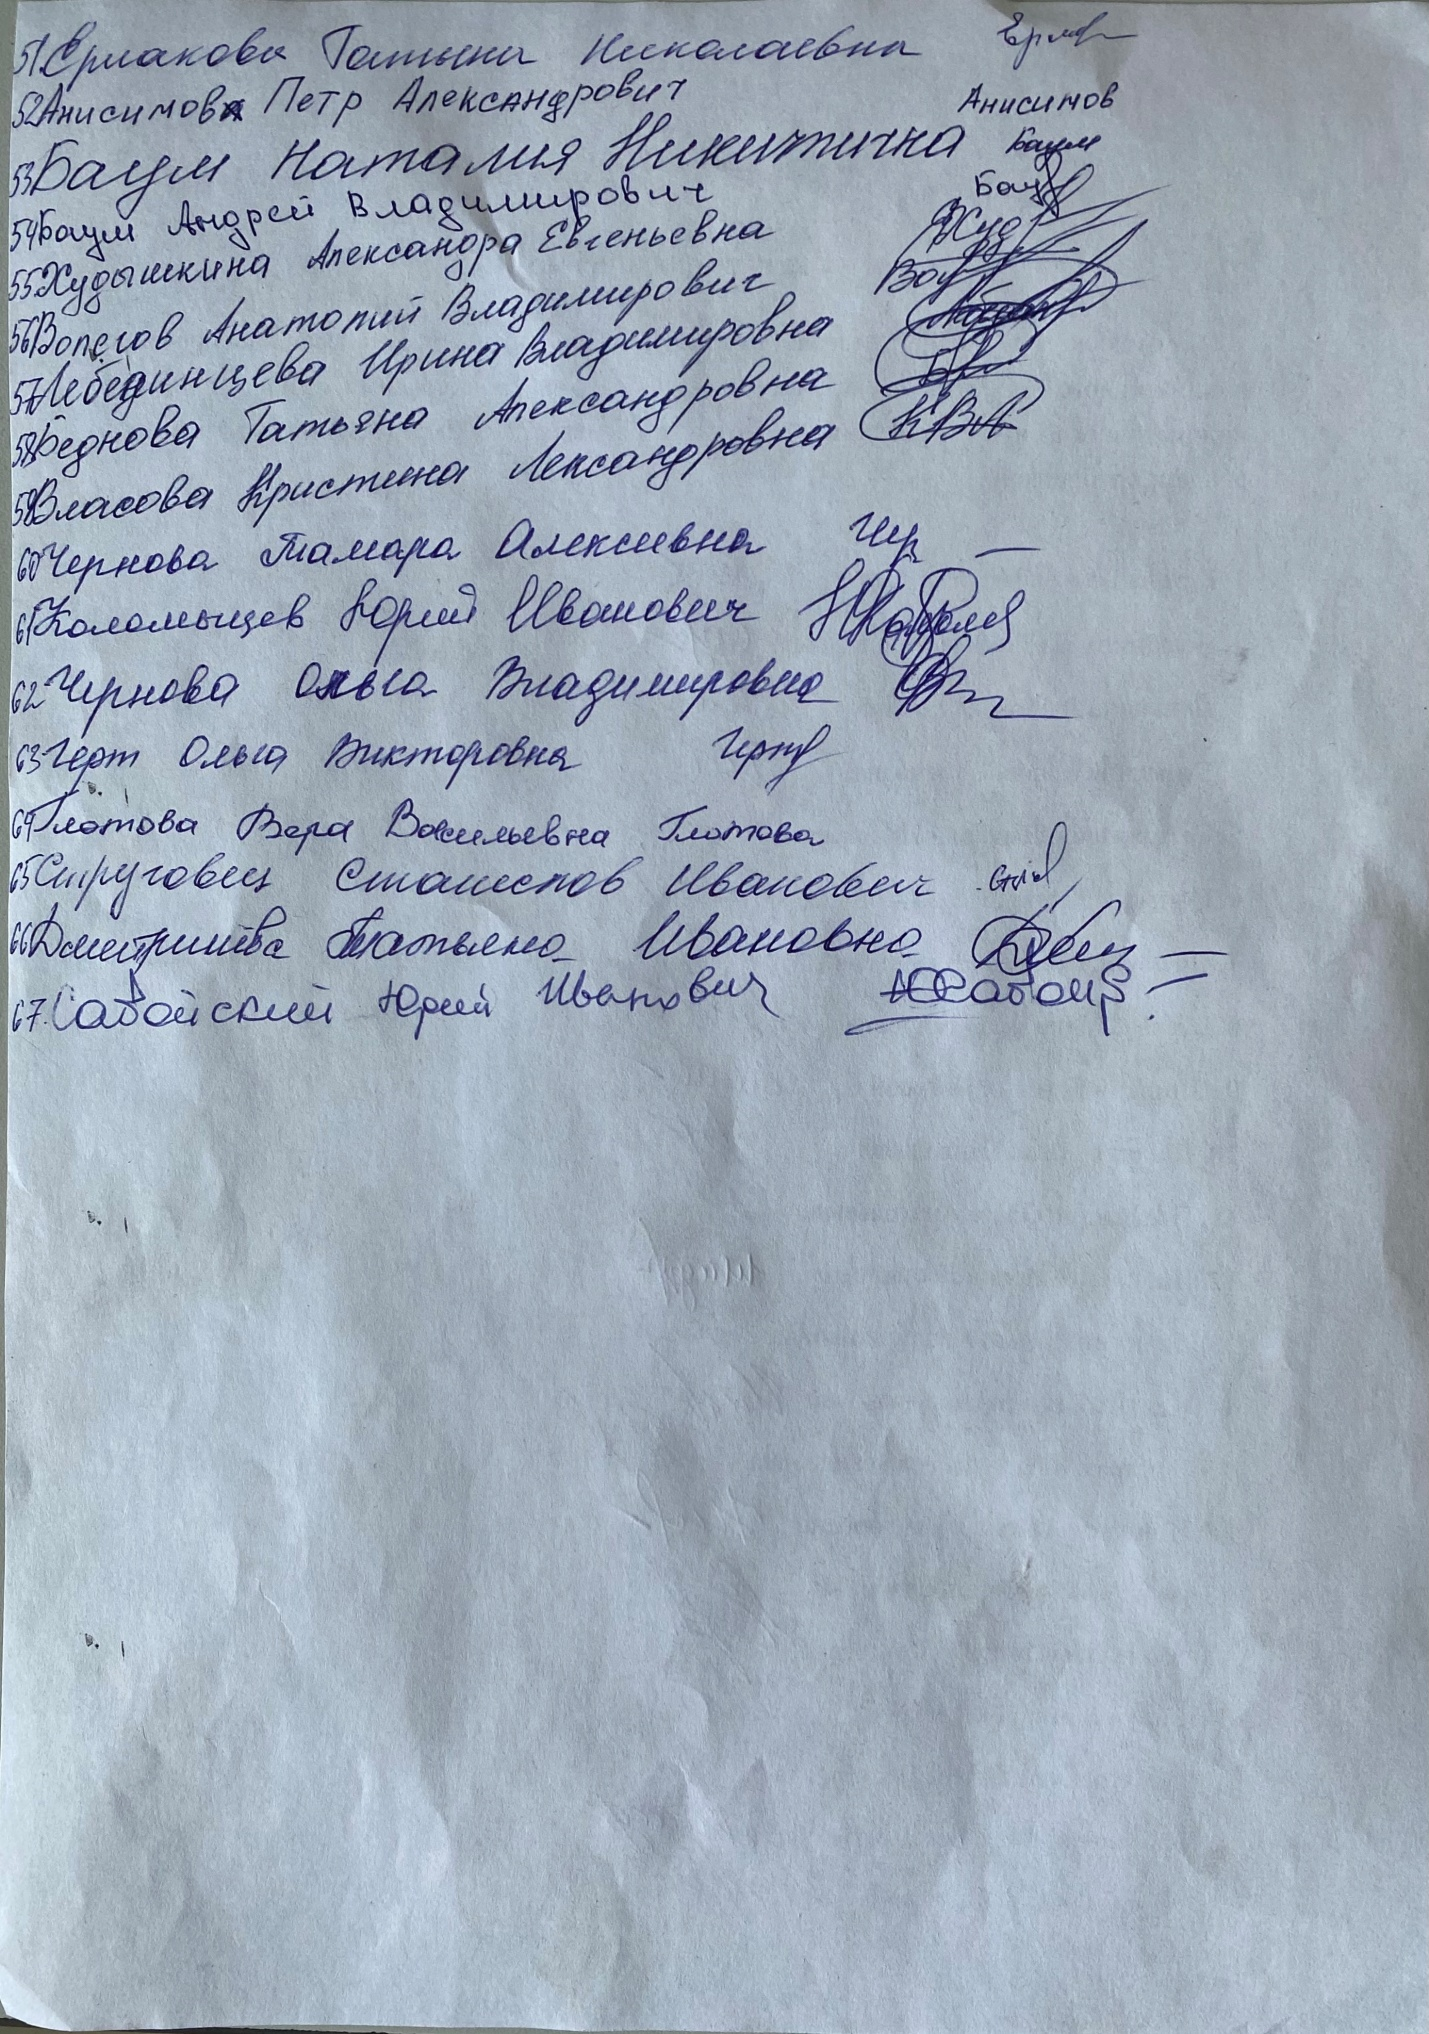 51. Ермакова Татьяна Николаевна Ерм
52 Анисимов Петр Александрович Анисимов
53 Баум Наталия Никитична Баум
54 Баум Андрей Владимирович Бау
55. Худышкина Александра Евгеньевна Худ
56 Вопегов Анатолий Владимирович Воп
57 Лебединцева Ирина Владимировна
58 Беднова Татьяна Александровна
59 Власова Кристина Лександровна КВА
60 Чернова Тамара Алексеевна Чер
61 Коломыцев Юрий Иванович
62 Чернова Ольга Владимировна
63 Черт Ольга Викторовна Черт
64 Глотова Вера Васильевна Глотова
65 Струговец Станислов Иванович
66 Татьяна Ивановна
67. Сабайский Юрий Иванович